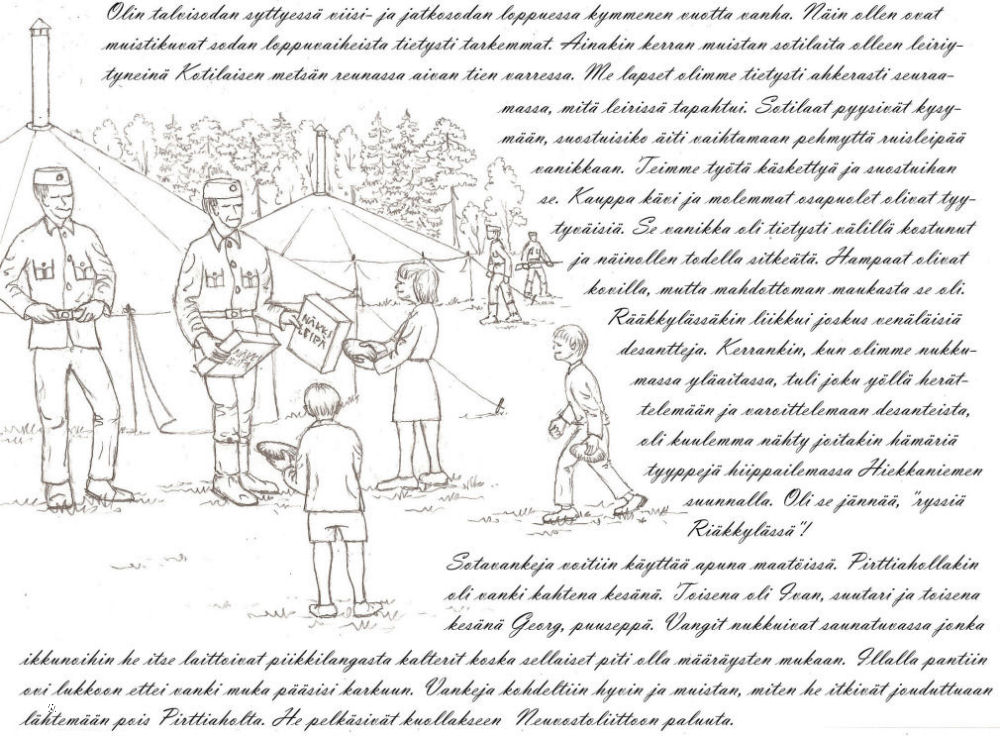 Olin talvisodan syttyessä viisi- ja jatkosodan loppuessa kymmenen vuotta vanha. Näin ollen ovat
muistikuvat sodan loppuvaiheista tietysti tarkemmat. Ainakin kerran muistan sotilaita olleen leiriy-
tyneinä Kotilaisen metsän reunassa aivan tien varressa. Me lapset olimme tietysti ahkerasti seuraa-
massa, mitä leirissä tapahtui. Sotilaat pyysivät kysy-
mään, suostuisiko äiti vaihtamaan pehmyttä ruisleipää
vanikkaan. Teimme työtä käskettyä ja suostuihan
se. Kauppa kävi ja molemmat osapuolet olivat tyy-
tyväisiä. Se vanikka oli tietysti välillä kostunut
ja näinollen todella sitkeätä. Hampaat olivat
kovilla, mutta mahdottoman maukasta se oli.
Rääkkylässäkin liikkui joskus venäläisiä
desantteja. Kerrankin, kun olimme nukku-
massa yläaitassa, tuli joku yöllä herät-
telemään ja varoittelemaan desanteista,
oli kuulemma nähty joitakin hämäriä
tyyppejä hiippailemassa Hiekkaniemen
suunnalla. Oli se jännää, "ryssiä
Riäkkylässä"!
Sotavankeja voitiin käyttää apuna maatöissä. Pirttiahollakin
oli vanki kahtena kesänä. Toisena oli Ivan, suutari ja toisena
kesänä Georg, puuseppä. Vangit nukkuivat saunatuvassa jonka
ikkunoihin he itse laittoivat piikkilangasta kalterit koska sellaiset piti olla määräysten mukaan. Illalla pantiin
ovi lukkoon ettei vanki muka pääsisi karkuun. Vankeja kohdeltiin hyvin ja muistan, miten he itkivät jouduttuaan
lähtemään pois Pirttiaholta. He pelkäsivät kuollakseen Neuvostoliittoon paluuta.
NÄKKI
LEIPÄ